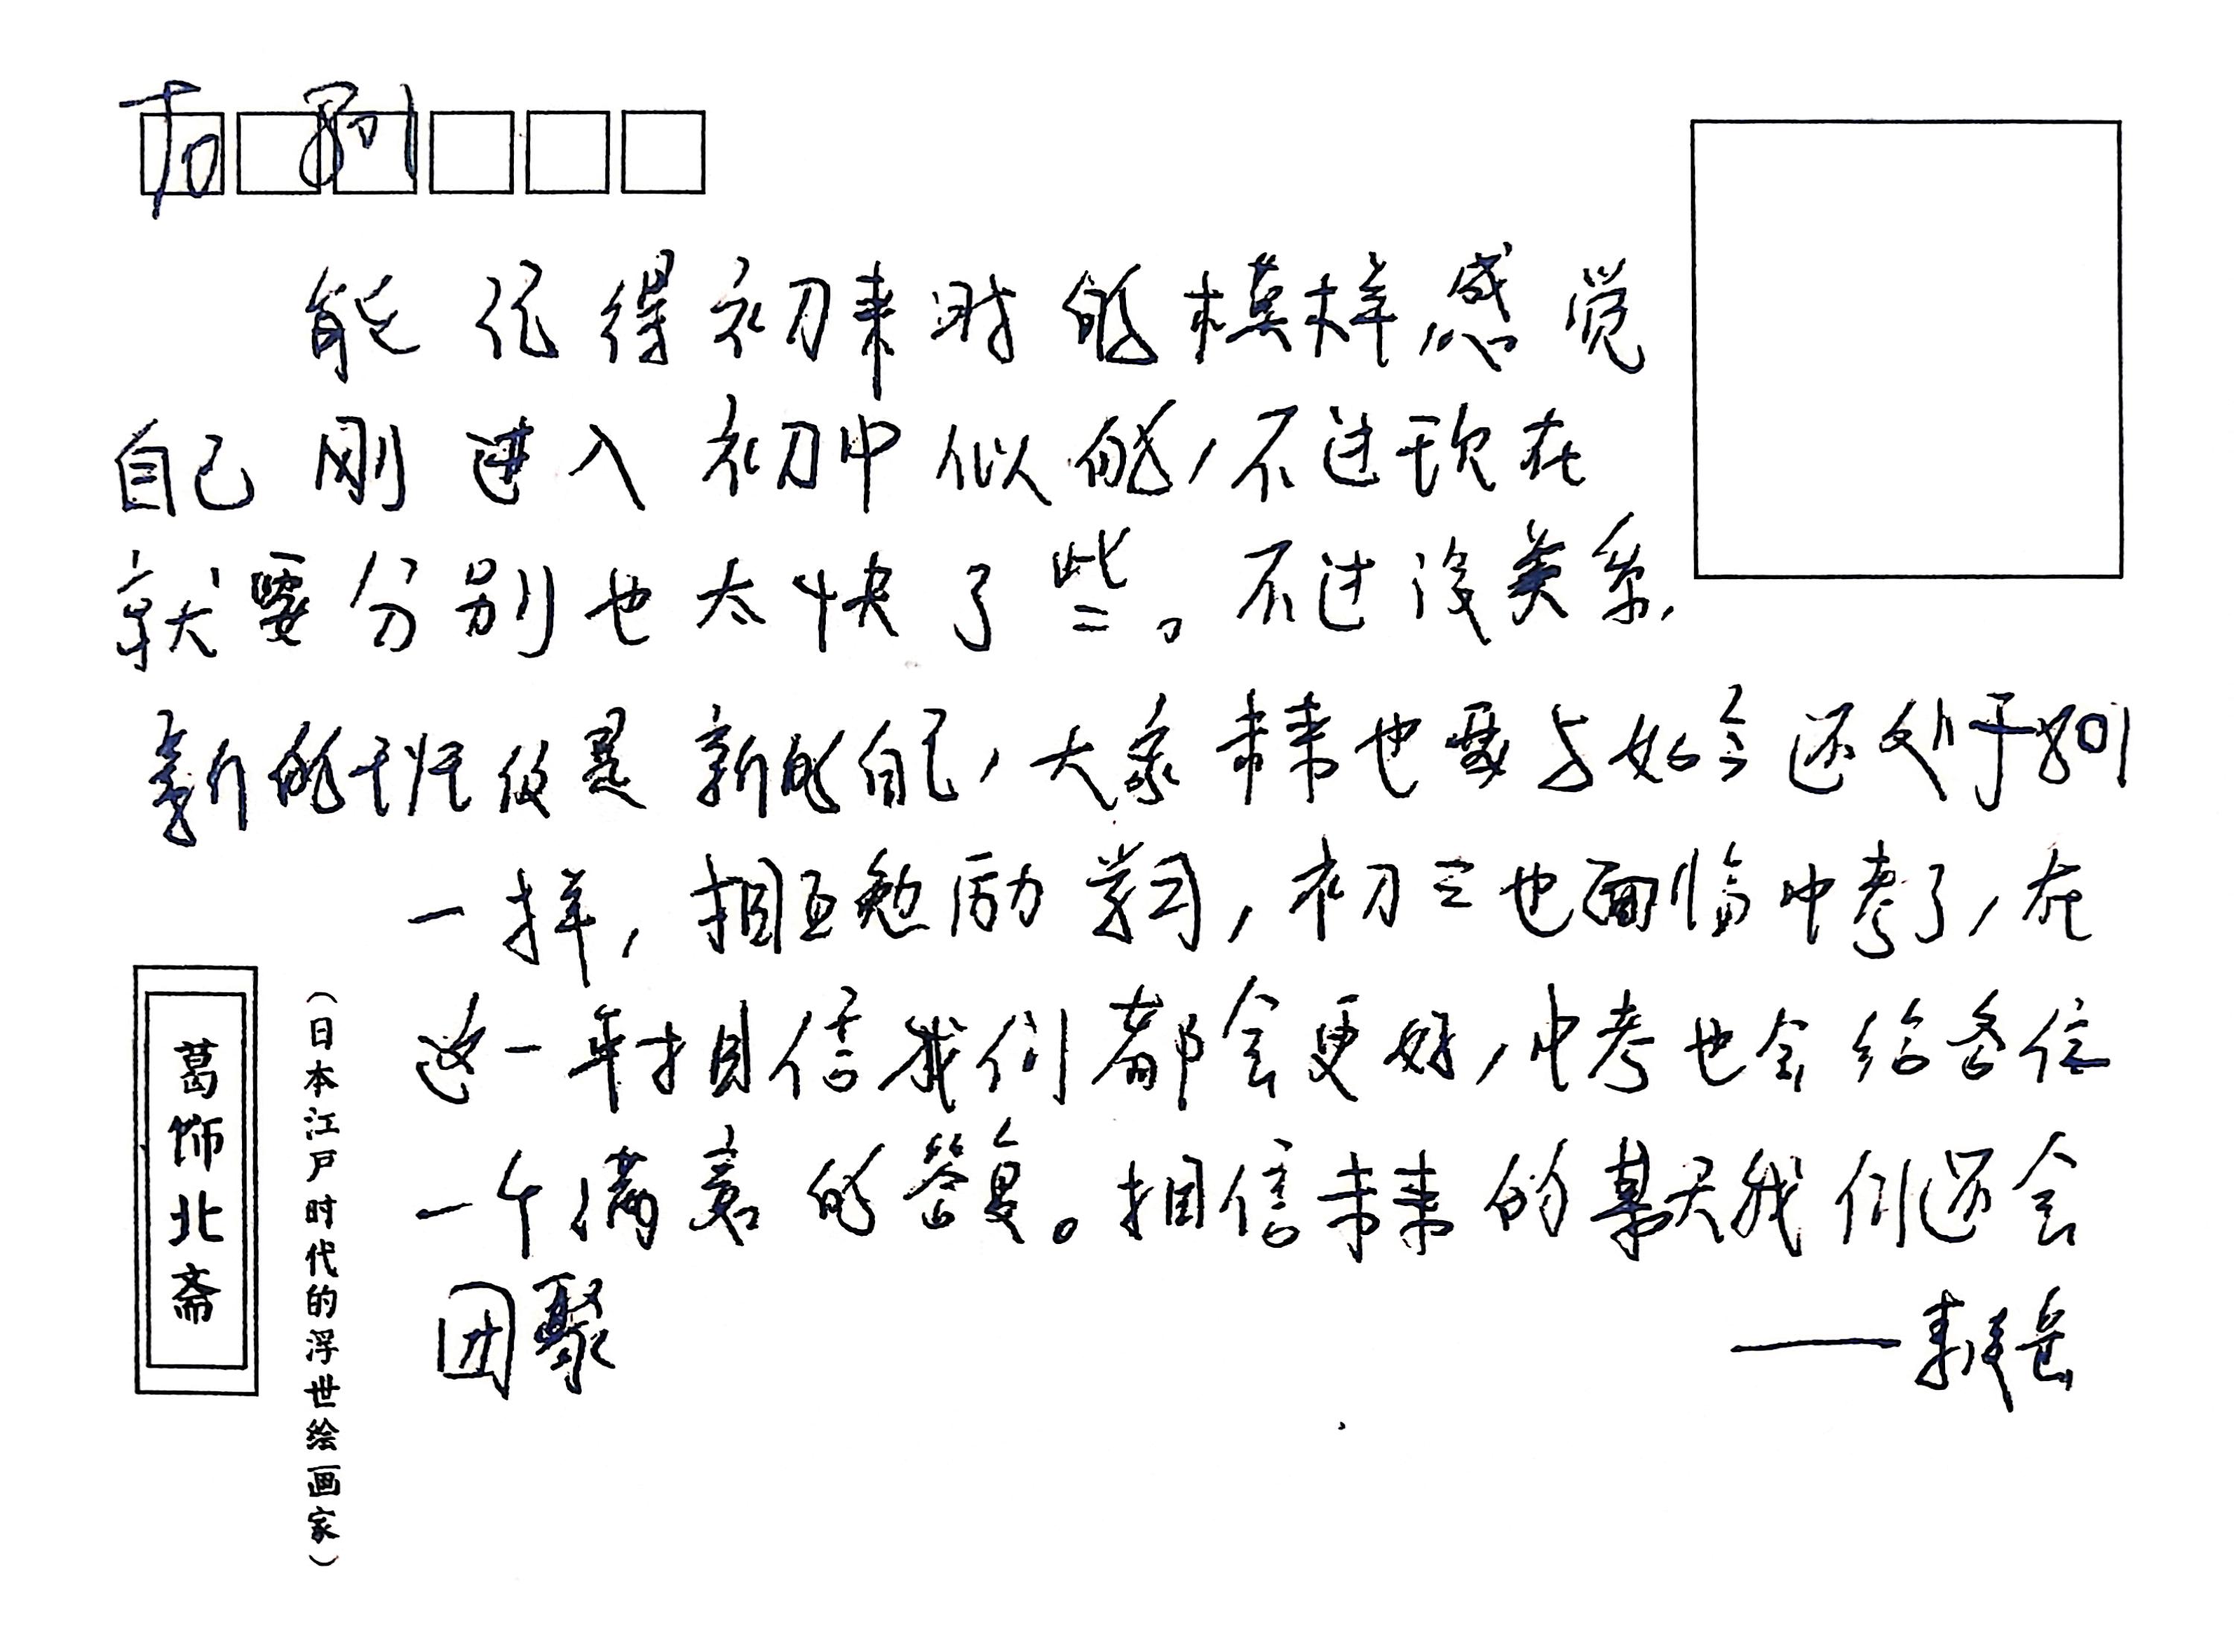 To 801
能记得初来时的模样感觉
自己刚进入初中似的,不过现在
就要分别也太快了些。不过没关系,
新的班级是新的自己,大家未来也要与如今还处于801
一样,相互勉励学习,初三也面临中考了,在
这一年相信我们都会更好,中考也会给各位
一个满意的答复。相信未来的某天我们还会
团聚
葛饰北斋
(日本江户时代的浮世绘画家)